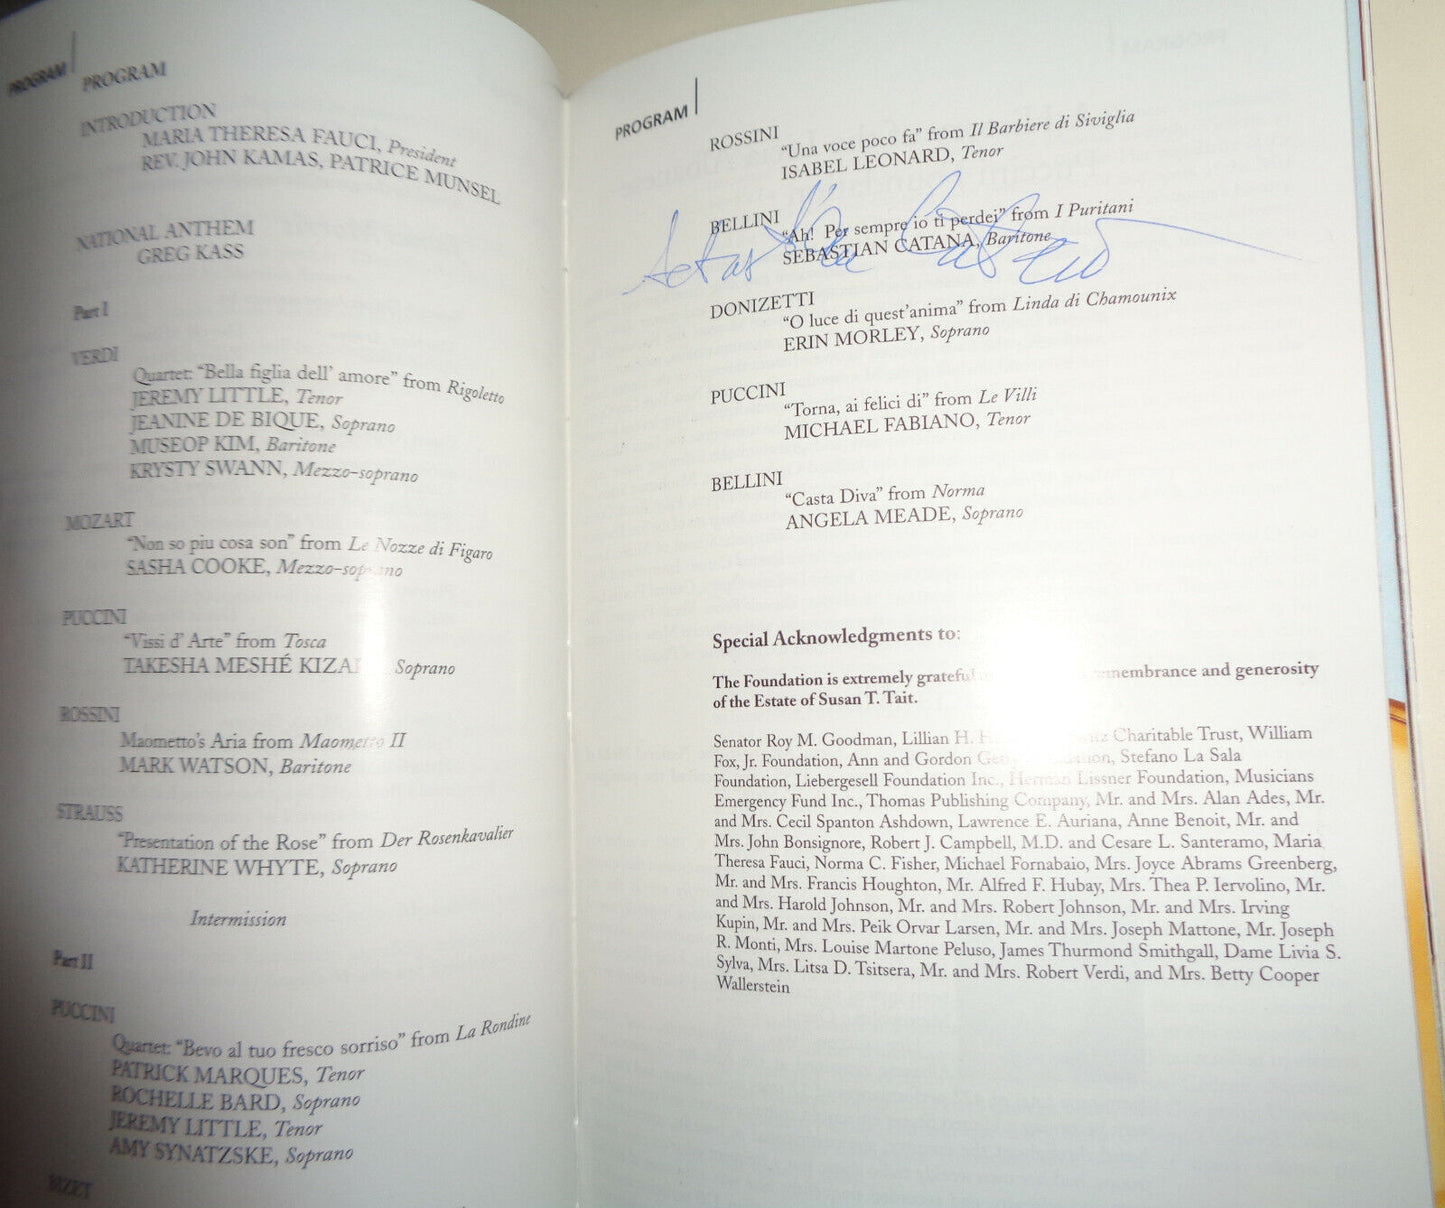 PROGRAM
PROGRAM
INTRODUCTION
MARIA THERESA FAUCI, President
REV. JOHN KAMAS, PATRICE MUNSEL
NATIONAL ANTHEM
GREG KASS
Part I
VERDI
Quartet: “Bella figlia dell’ amore” from Rigoletto
JEREMY LITTLE, Tenor
JEANINE DE BIQUE, Soprano
MUSEOP KIM, Baritone
KRYSTY SWANN, Mezzo-soprano
MOZART
“Non so piu cosa son” from Le Nozze di Figaro
SASHA COOKE, Mezzo-soprano
PUCCINI
“Vissi d’ Arte” from Tosca
TAKESHA MESHÉ Soprano
ROSSINI
Maometto’s Aria from Maometto II
MARK WATSON, Baritone
STRAUSS
“Presentation of the Rose” from Der Rosenkavalier
KATHERINE WHYTE, Soprano
Intermission
Part II
PUCCINI
Quartet: “Bevo al tuo fresco sorriso” from La Rondine
PATRICK MARQUES, Tenor
ROCHELLE BARD, Soprano
JEREMY LITTLE, Tenor
AMY SYNATZSKE, Soprano
BIZET
PROGRAM
ROSSINI
“Una voce poco fa” from Il Barbiere di Siviglia
ISABEL LEONARD, Tenor
BELLINI
“Ah! Per sempre io ti perdei” from I Puritani
SEBASTIAN CATANA, Baritone
DONIZETTI
“O luce di quest’anima” from Linda di Chamounix
ERIN MORLEY, Soprano
PUCCINI
“Torna, ai felici di” from Le Villi
MICHAEL FABIANO, Tenor
BELLINI
“Casta Diva” from Norma
ANGELA MEADE, Soprano
Special Acknowledgments to:
The Foundation is extremely grateful and generosity
of the Estate of Susan T. Tait.
Senator Roy M. Goodman, Lillian H. Charitable Trust, William
Fox, Jr. Foundation, Ann and Gordon Stefano La Sala
Foundation, Liebergesell Foundation Inc., Herman Lissner Foundation, Musicians
Emergency Fund Inc., Thomas Publishing Company, Mr. and Mrs. Alan Ades, Mr.
and Mrs. Cecil Spanton Ashdown, Lawrence E. Auriana, Anne Benoit, Mr. and
Mrs. John Bonsignore, Robert J. Campbell, M.D. and Cesare L. Santeramo, Maria
Theresa Fauci, Norma C. Fisher, Michael Fornabaio, Mrs. Joyce Abrams Greenberg,
Mr. and Mrs. Francis Houghton, Mr. Alfred F. Hubay, Mrs. Thea P. Iervolino, Mr.
and Mrs. Harold Johnson, Mr. and Mrs. Robert Johnson, Mr. and Mrs. Irving
Kupin, Mr. and Mrs. Peik Orvar Larsen, Mr. and Mrs. Joseph Mattone, Mr. Joseph
R. Monti, Mrs. Louise Martone Peluso, James Thurmond Smithgall, Dame Livia S.
Sylva, Mrs. Litsa D. Tsitsera, Mr. and Mrs. Robert Verdi, and Mrs. Betty Cooper
Wallerstein